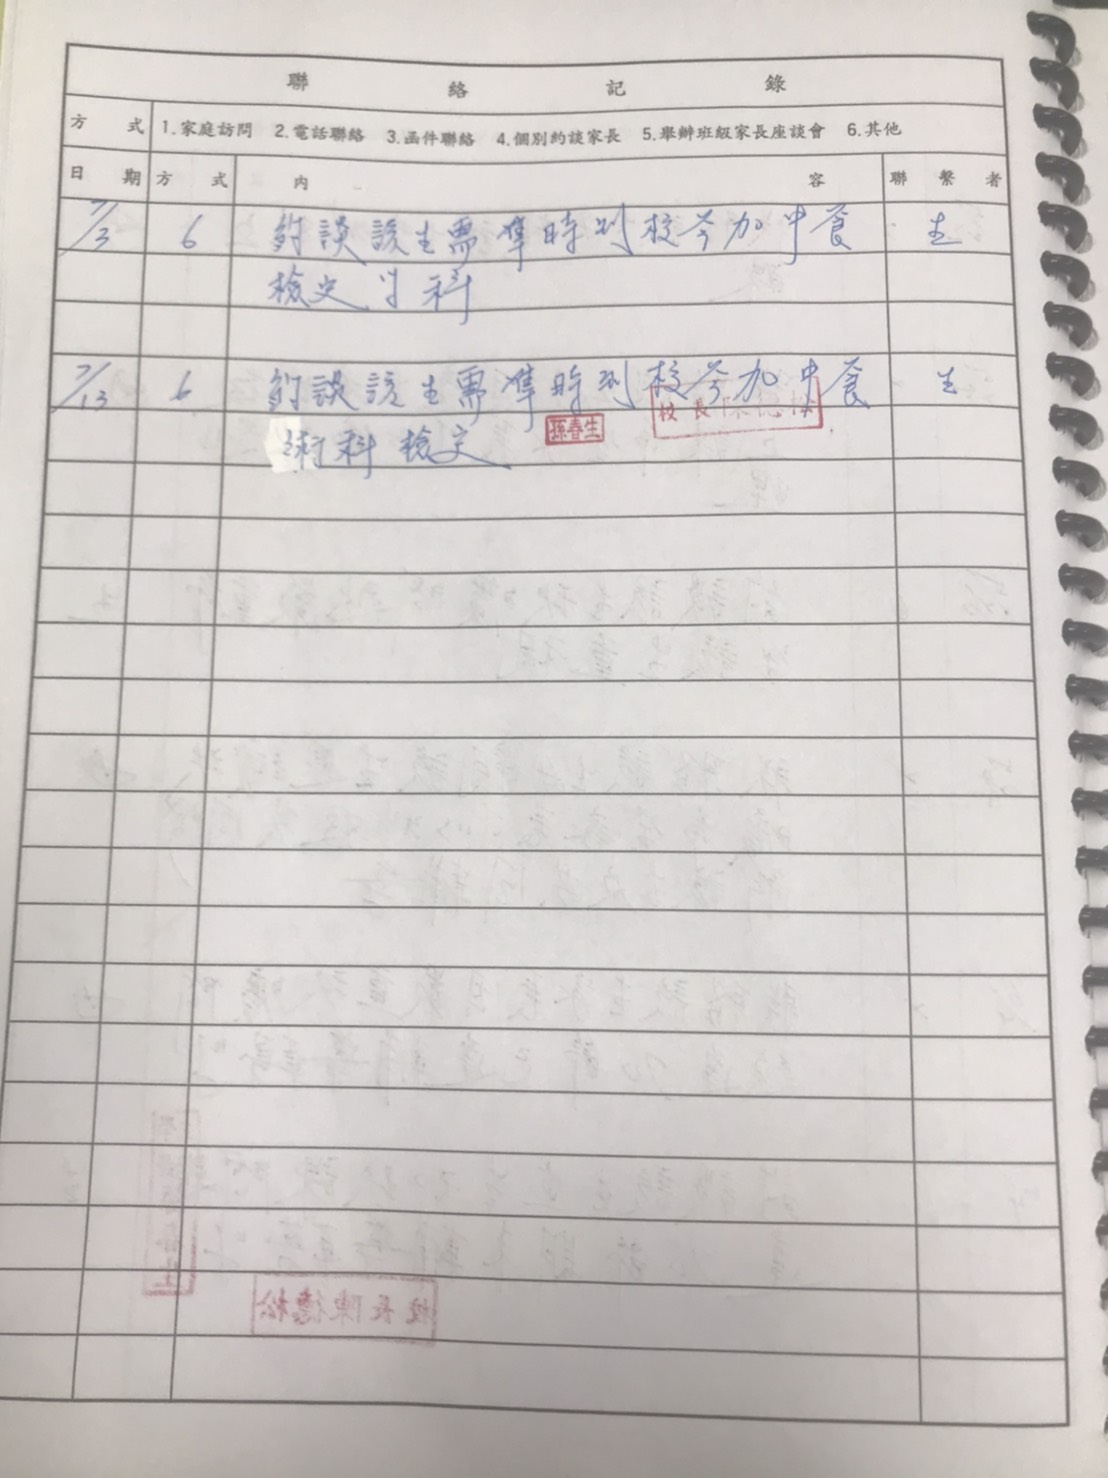 聯絡記錄
方式 1.家庭訪問 2.電話聯絡 3.函件聯絡 4.個別約談家長 5.舉辦班級家長座談會 6.其他
日期 方式 內容 聯繫者
7/3 6 約談該生需準時到校參加中餐 生
檢定學科
7/13 6 約談該生需準時到校參加中餐 生
校長陳德松
術科檢定 孫春生
校長陳德松